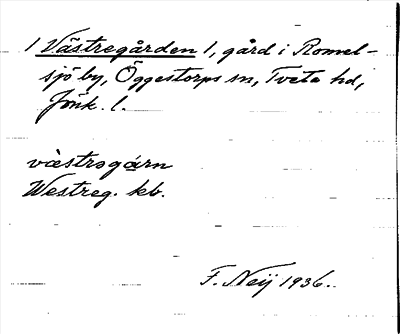 / Västregården /, gård i Romel-
sjö by, Öggestorps sn, Tveta hd,
Jönk. l.
västrəgárn
Westreg. kb.
F. Neij 1936.